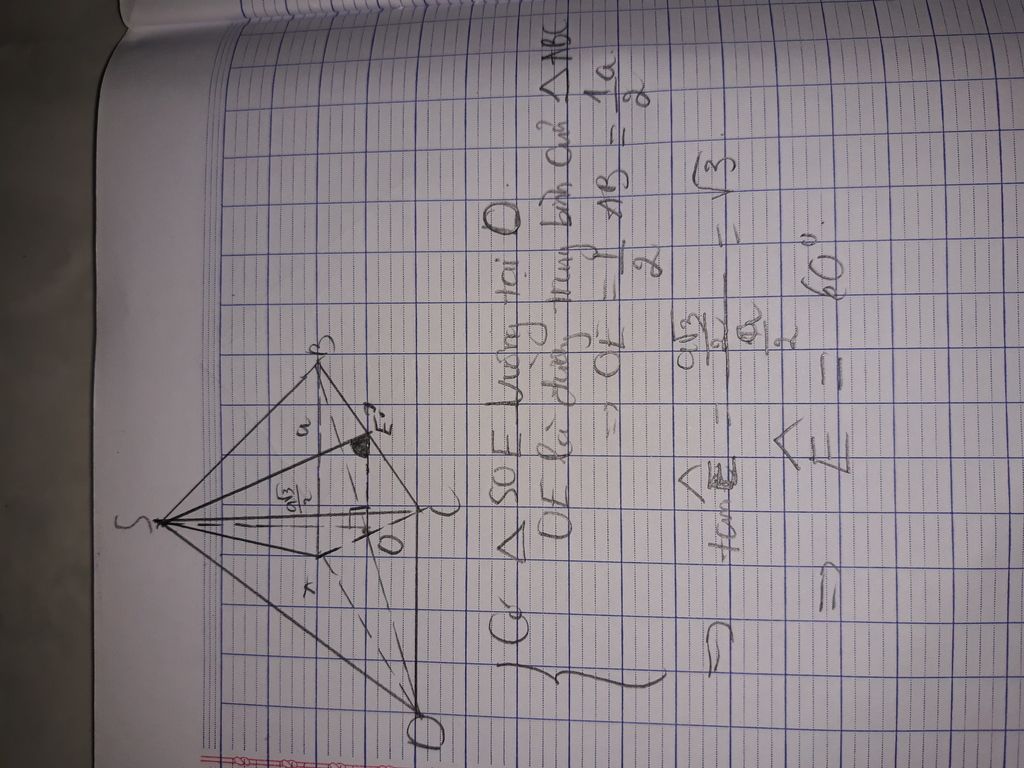 S
A
B
a
a√3/2
E?
H
O
C
D
{ Có Δ SOE vuông tại O
OE là đường trung bình của ΔABC
=> OE = 1/2 AB = 1a/2
=> tan Ê = (a√3/2)/(a/2) = √3
=> Ê = 60°